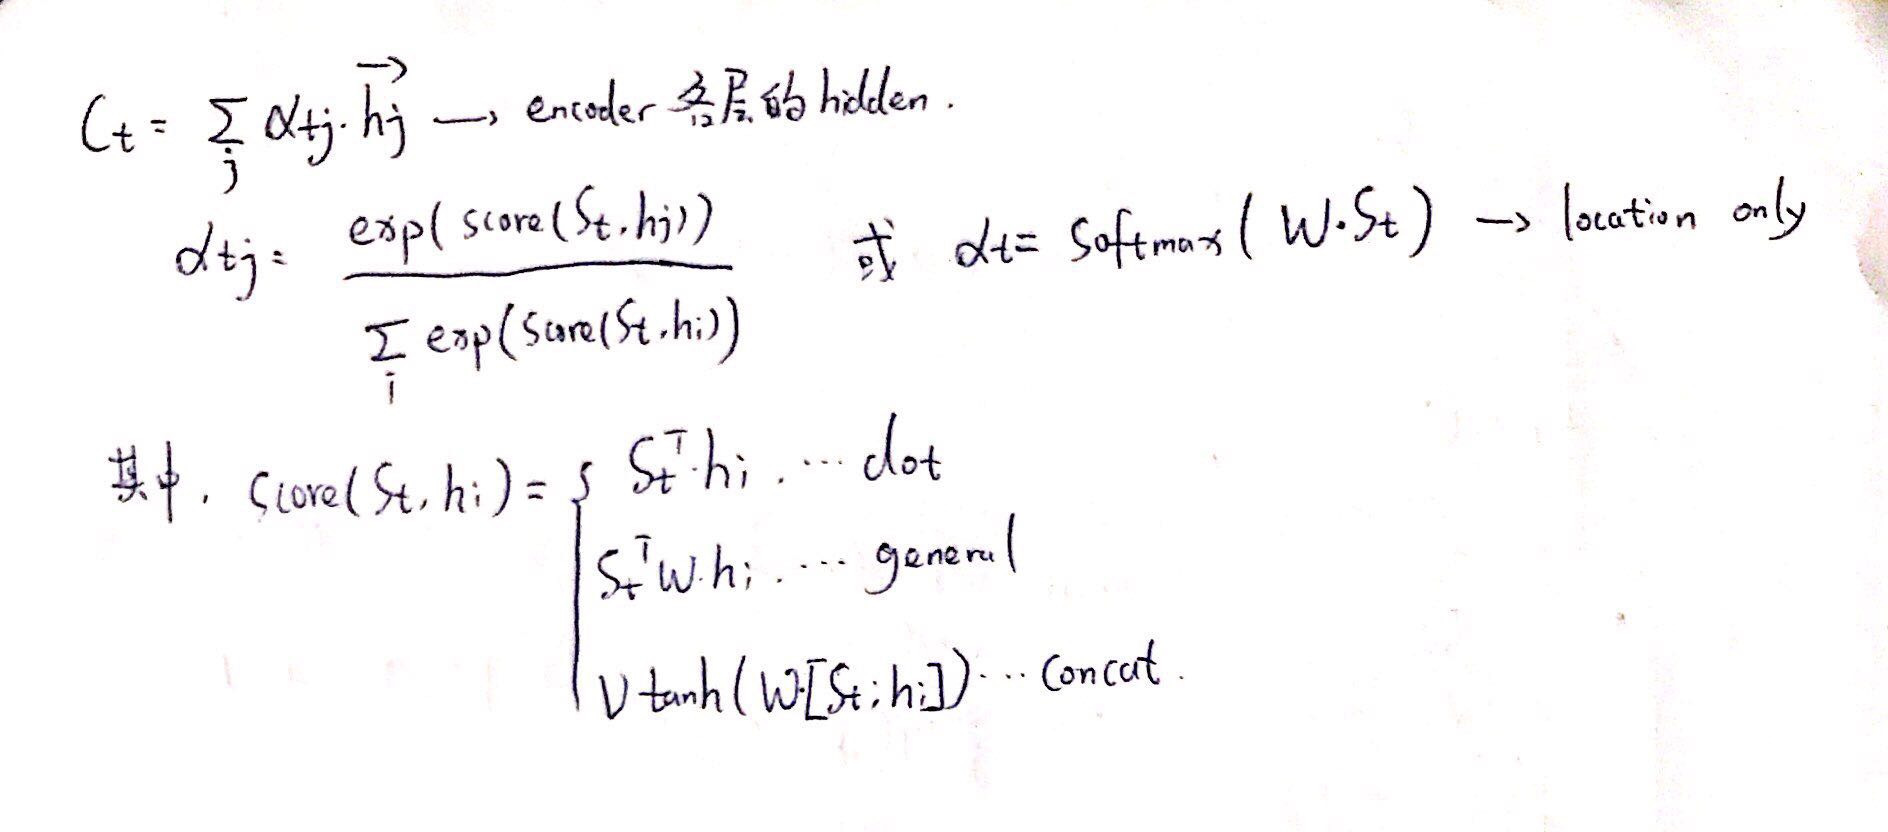 Ct = Σj αtj · hj → encoder 各层的 hidden.
αtj = exp(score(St, hj)) / Σi exp(score(St, hi)) 或 αt = Softmax(W·St) → location only
其中, Score(St, hi) = { St^T · hi . ... dot
St^T W · hi . ... general
V tanh(W·[St; hi]) ... Concat.